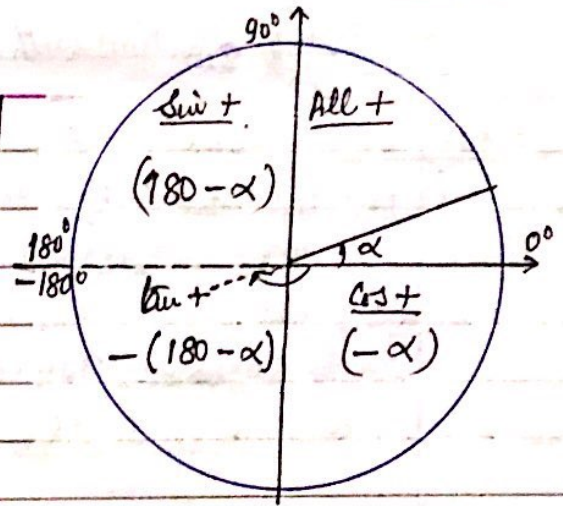 90°
Sin +
All +
(180 - α)
180°
0°
α
-180°
tan +
Cos +
-(180 - α)
(-α)